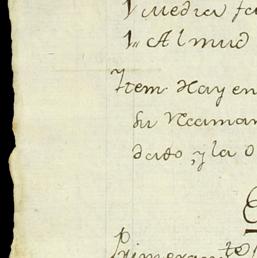 y media fa
1,, Almud
Ytem Hay en
su Reeman
dado, y la o
Primeramte